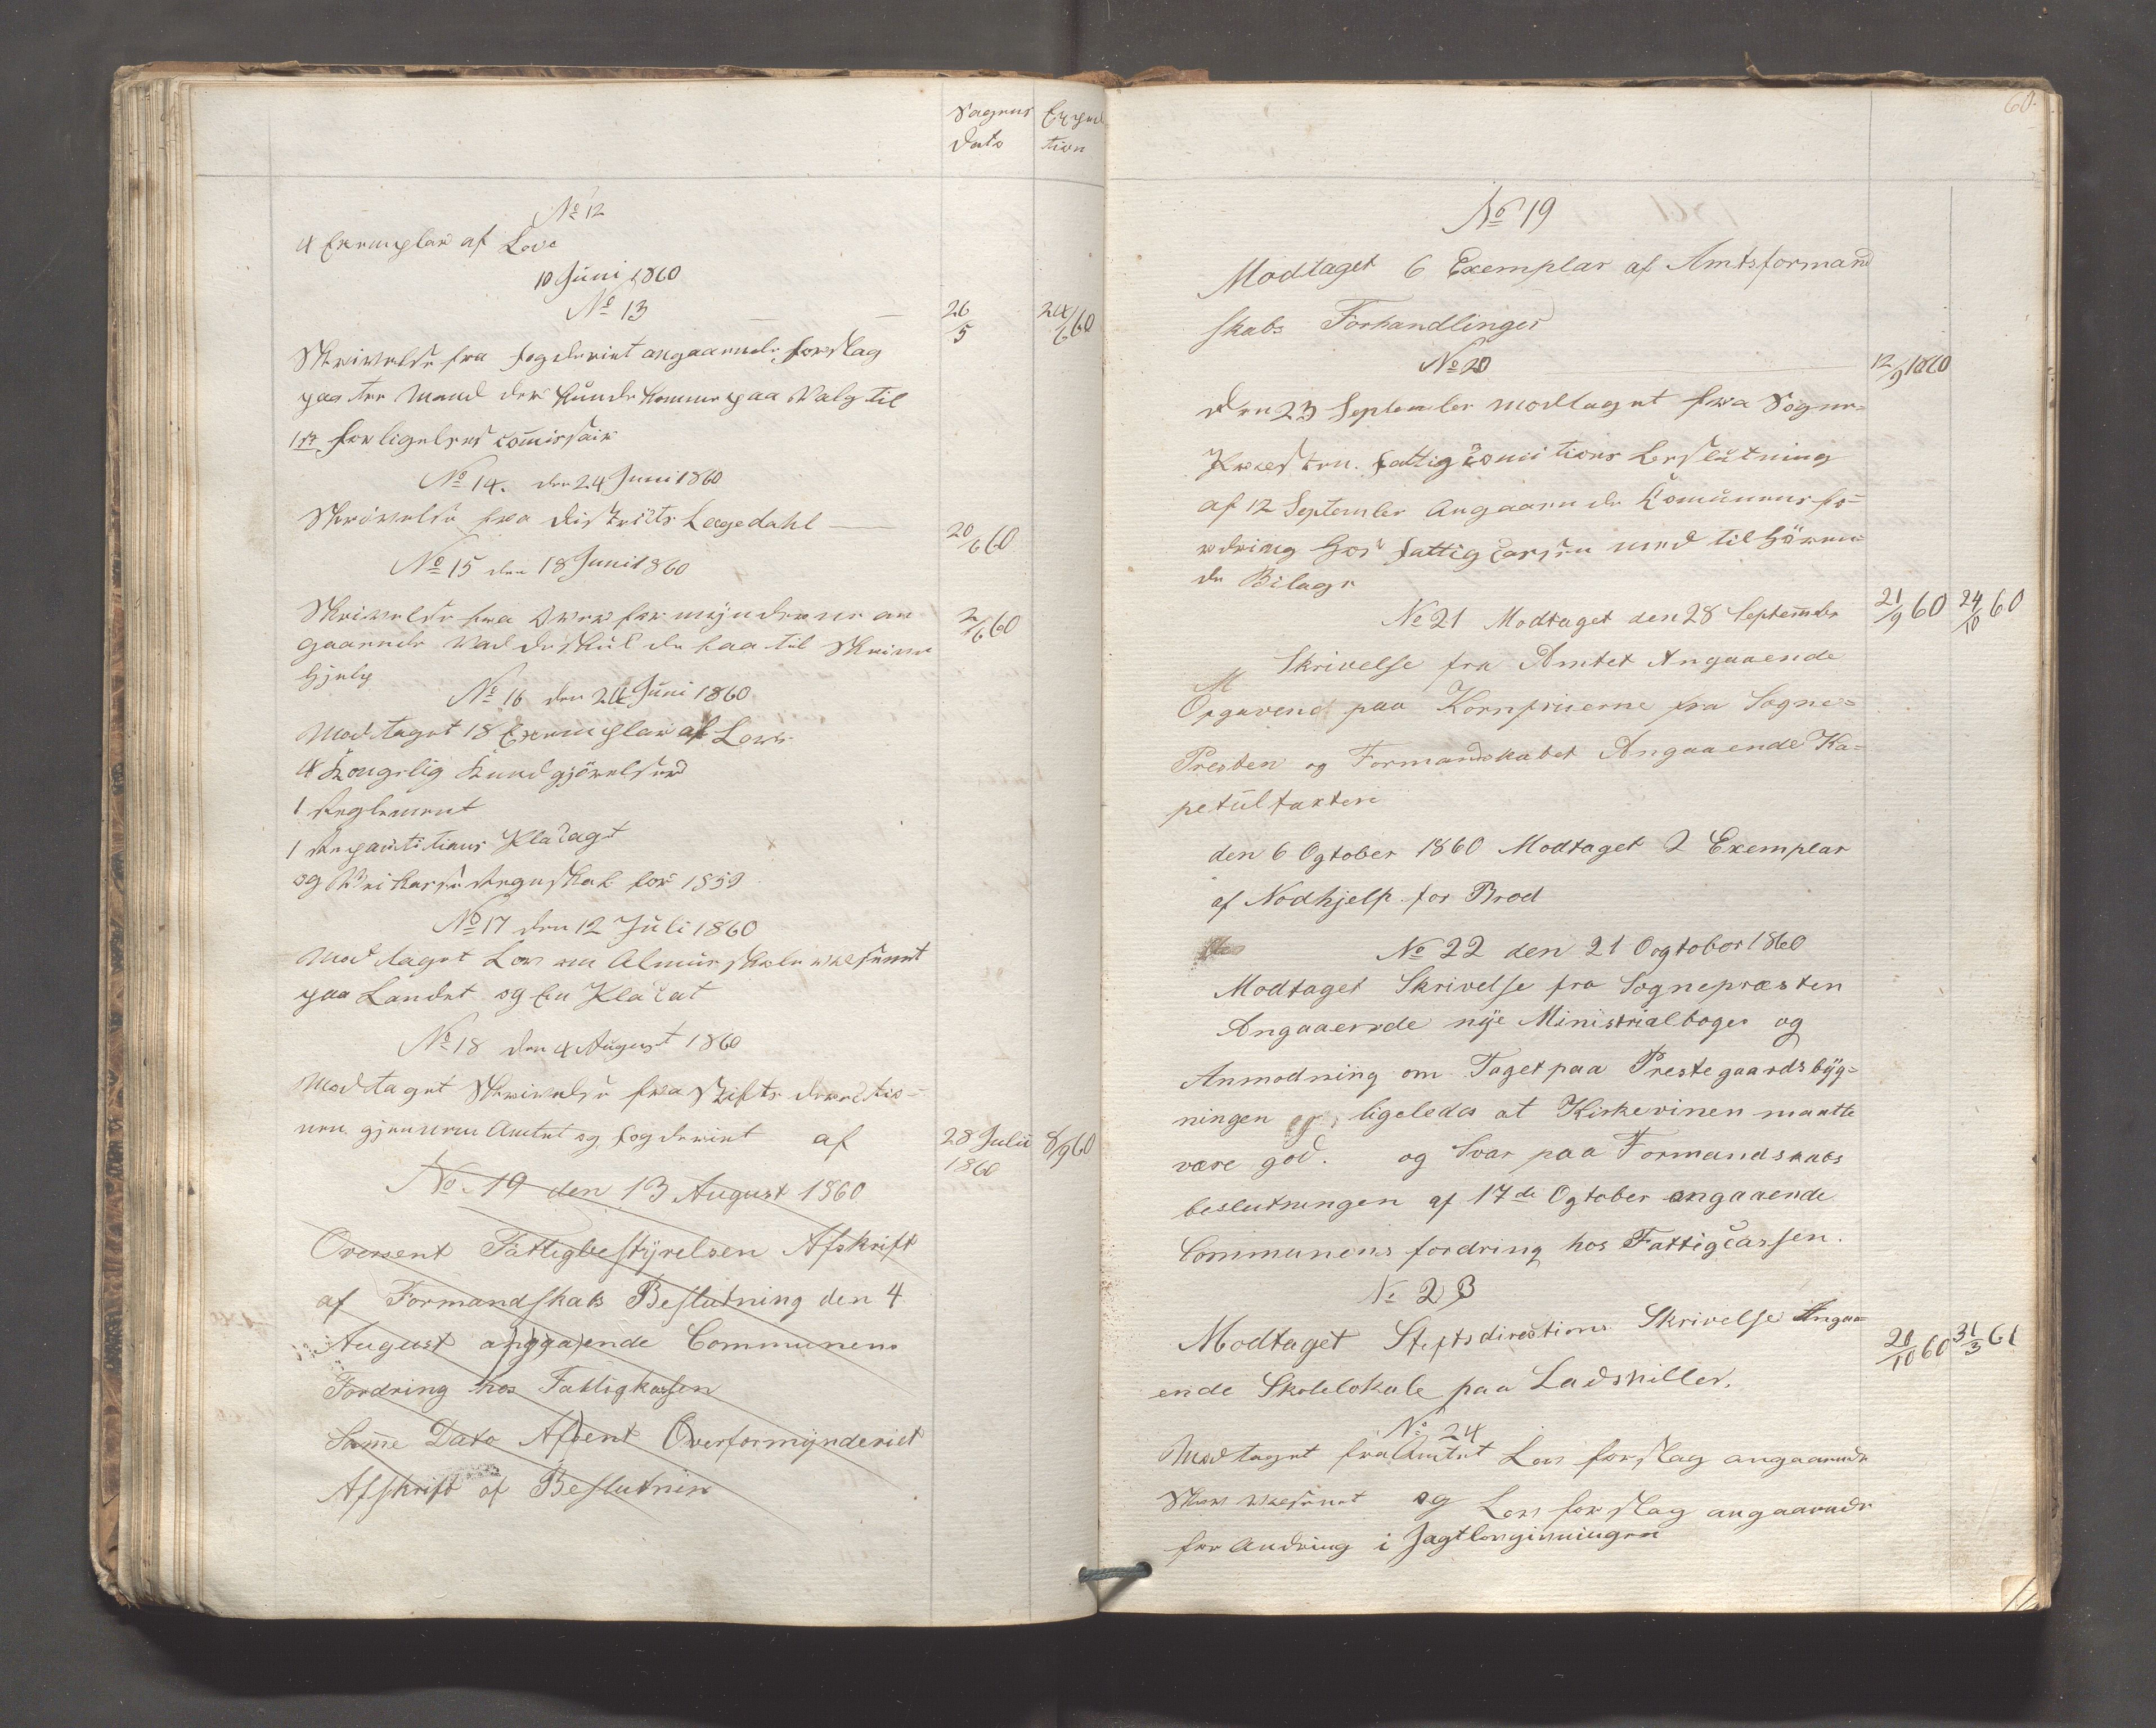 Sagens Expedi
Dato tion
No 12
4 Exemplar af Love
10 Juni 1860
No 13
26/5 24/6 60
Skrivelse fra Fogderiet angaaende forslag
paa tre Mand der kunde komme paa Valg til
1ste forligelses comissair
No 14. den 24 Juni 1860
Skrivelse fra Districts Lægedahl
20/6 60
No 15 den 18 Juni 1860
Skrivelse fra Overformynderne an
gaaende Vad de skulde faa til Skrive
hjelp
2/6 60
No 16 den 24 Juni 1860
Modtaget 18 Exemplar af Love
4 Kongelig Kundgjörelser
1 Reglement
1 Repartitions Placagt
og Veikasse Regnskab for 1859
No 17 den 12 Juli 1860
Modtaget Lov om Almueskolevæsenet
paa Landet og En Placat
No 18 den 4 August 1860
Modtaget Skrivelse fra Stiftsdirectio-
nen gjennem Amtet og Fogderiet af
28 Julii 1860 8/9 60
No 19 den 13 August 1860
Oversent Fattigbestyrelsen Afskrift
af Formandskabs Beslutning den 4
August angaaende Communens
Fordring hos Fattigkassen
Samme Dato Afsent Overformynderiet
Afskrift af Beslutnin
60.
No 19
Modtaget 6 Exemplar af Amtsformand
skabs Forhandlinger
No 20
12/9 1860
den 23 September modtaget fra Sogne-
Præsten. Fattigcomitions Beslutning
af 12 September Angaaende Komunens fo-
rdring hos Fattigcassen med tilhören-
de Bilage
No 21 Modtaget den 28 September
21/9 60 24/10 60
Skrivelse fra Amtet Angaaende
Opgavend paa Kornpriserne fra Sogne-
Presten og Formandskabet Angaaende Ka-
petultaxten
den 6 Ogtober 1860 Modtaget 2 Exemplar
af Nodhjelp for Brod
No 22 den 21 Oogtobor 1860
Modtaget Skrivelse fra Sognepræsten
Angaaende nye Ministrialboger og
Anmodning om Taget paa Prestegaardsbyg-
ningen og ligeledes at Kirkevinen maatte
være god. og Svar paa Formandskabs
beslutningen af 17de Ogtober angaaende
Communens fordring hos Fattigcassen.
No 23
Modtaget Stiftsdirections Skrivelse Angaa-
ende Skolelokale paa Ladskiller.
20/10 60 31/3 61
No 24
Modtaget fra Amtet Lov forslag angaaende
Skov væsenet og Lov forslag angaaende
forandring i Jagtlovgivningen